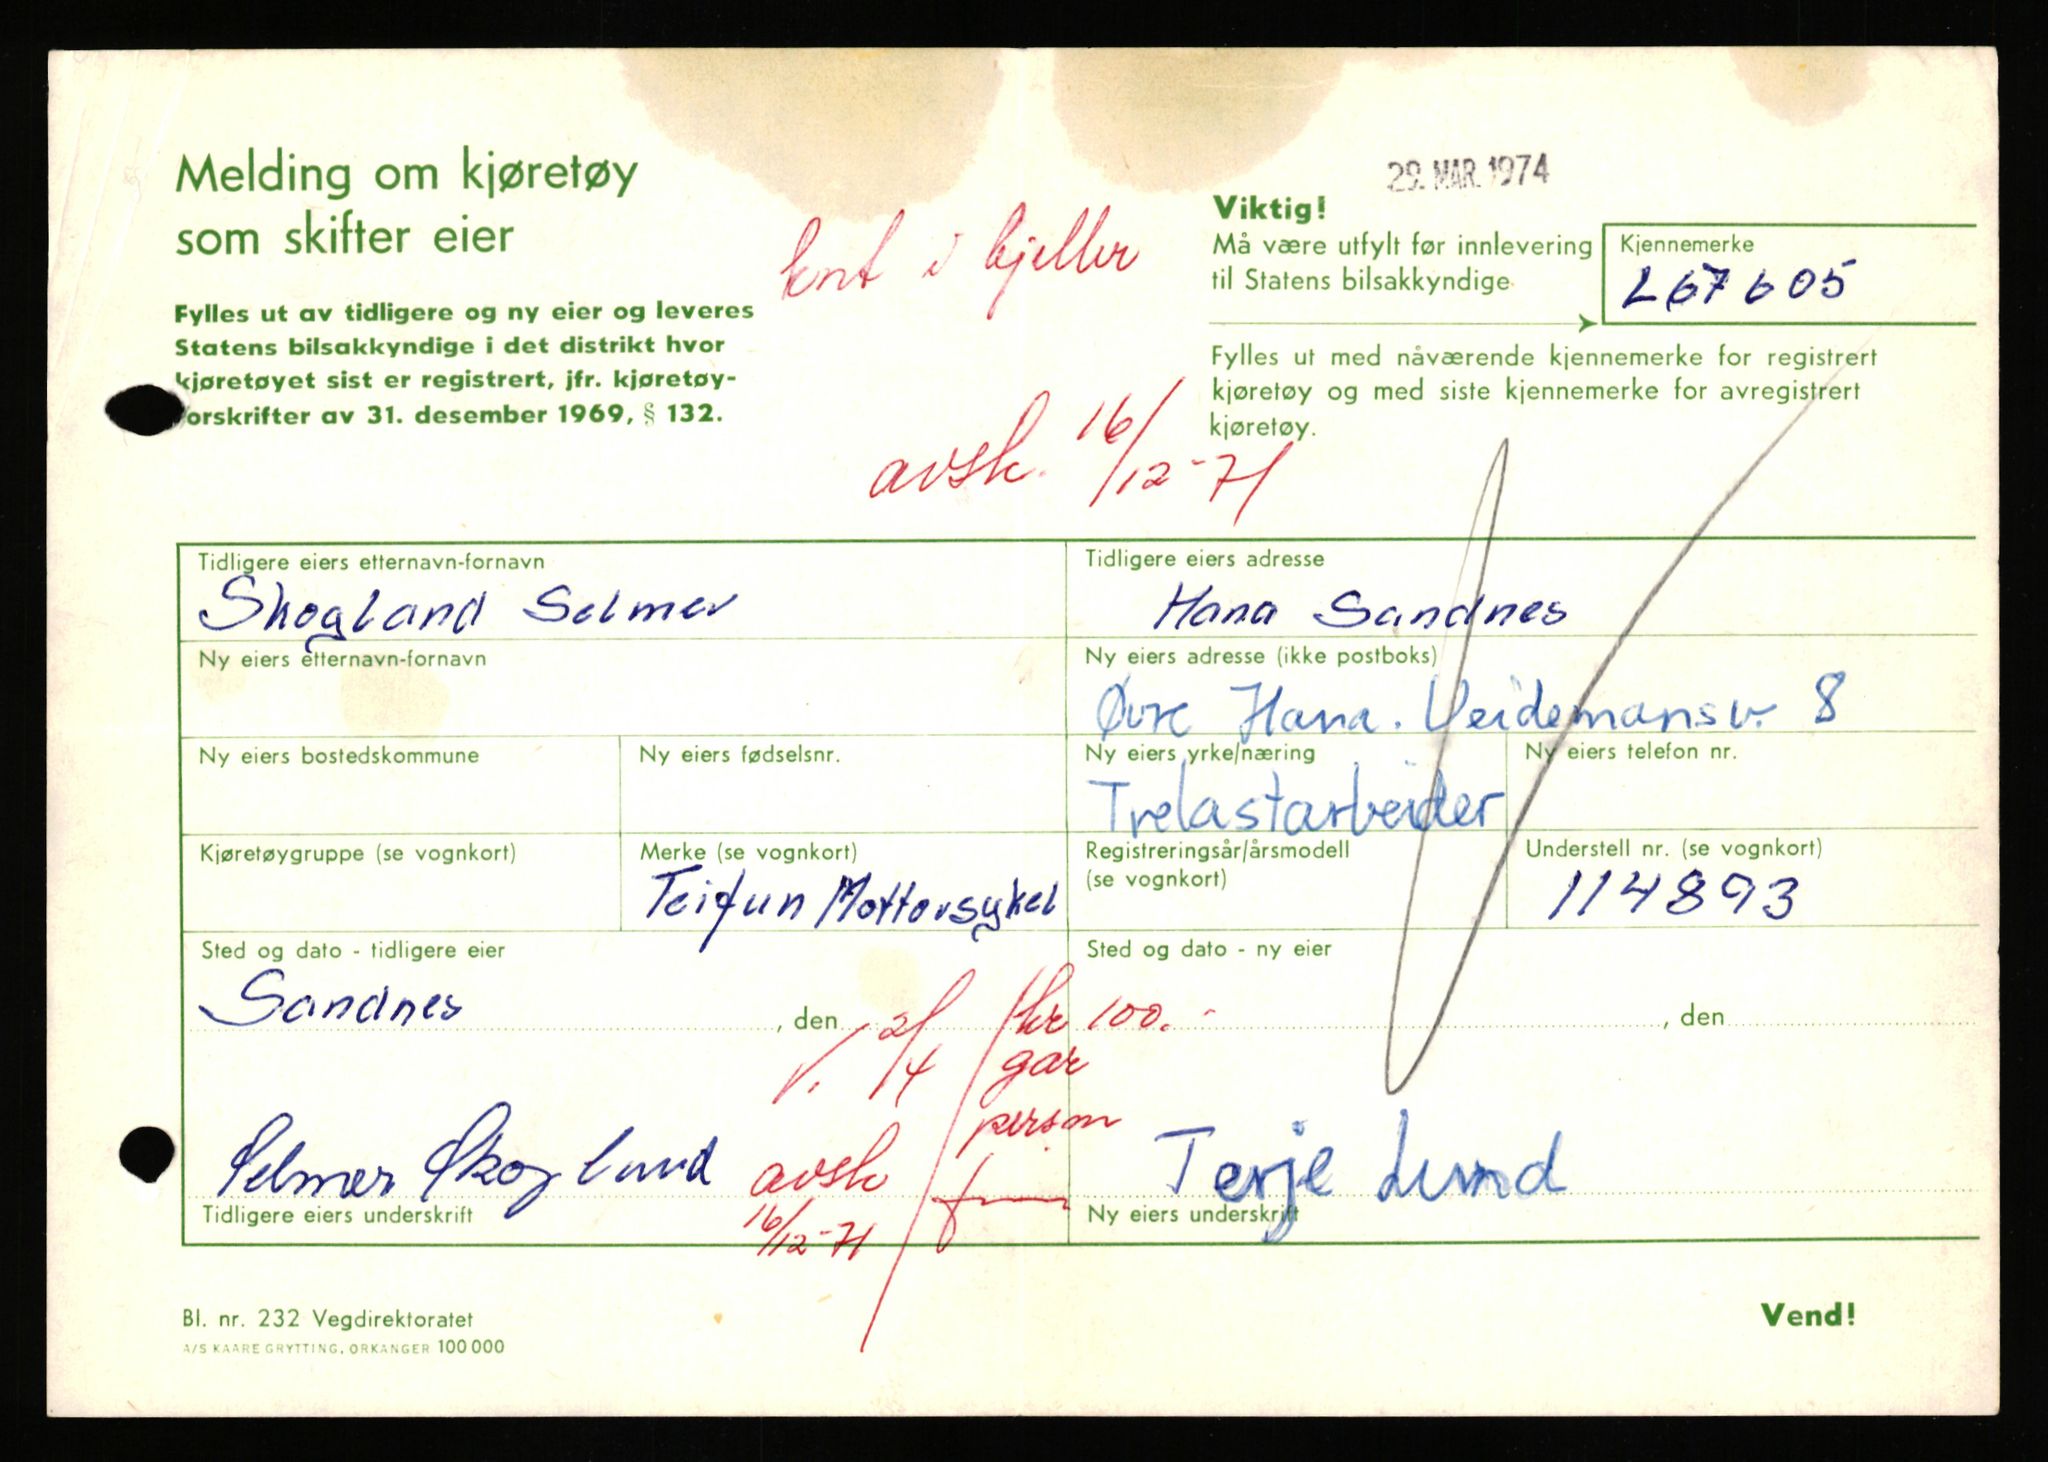 Melding om kjøretøy
som skifter eier
Fylles ut av tidligere og ny eier og leveres
Statens bilsakkyndige i det distrikt hvor
kjøretøyet sist er registrert, jfr. kjøretøy-
forskrifter av 31. desember 1969, § 132.
knt i kjeller
avsk. 16/12-71
29. MAR. 1974
Viktig!
Må være utfylt før innlevering
til Statens bilsakkyndige
Kjennemerke
L67605
Fylles ut med nåværende kjennemerke for registrert
kjøretøy og med siste kjennemerke for avregistrert
kjøretøy.
Tidligere eiers etternavn-fornavn
Skogland Selmer
Tidligere eiers adresse
Hana Sandnes
Ny eiers etternavn-fornavn
Ny eiers adresse (ikke postboks)
Øvre Hana. Veidemansv. 8
Ny eiers bostedskommune
Ny eiers fødselsnr.
Ny eiers yrke/næring
Trelastarbeider
Ny eiers telefon nr.
Kjøretøygruppe (se vognkort)
Merke (se vognkort)
Teifun Mottorsykel
Registreringsår/årsmodell
(se vognkort)
Understell nr. (se vognkort)
114893
Sted og dato - tidligere eier
Sandnes , den
Sted og dato - ny eier
, den
V. 2/4
kr 100.-
gar
person
Selmer Skogland
avsk
16/12-71
Tidligere eiers underskrift
Terje Lund
Ny eiers underskrift
Bl. nr. 232 Vegdirektoratet
A/S KAARE GRYTTING, ORKANGER 100 000
Vend!